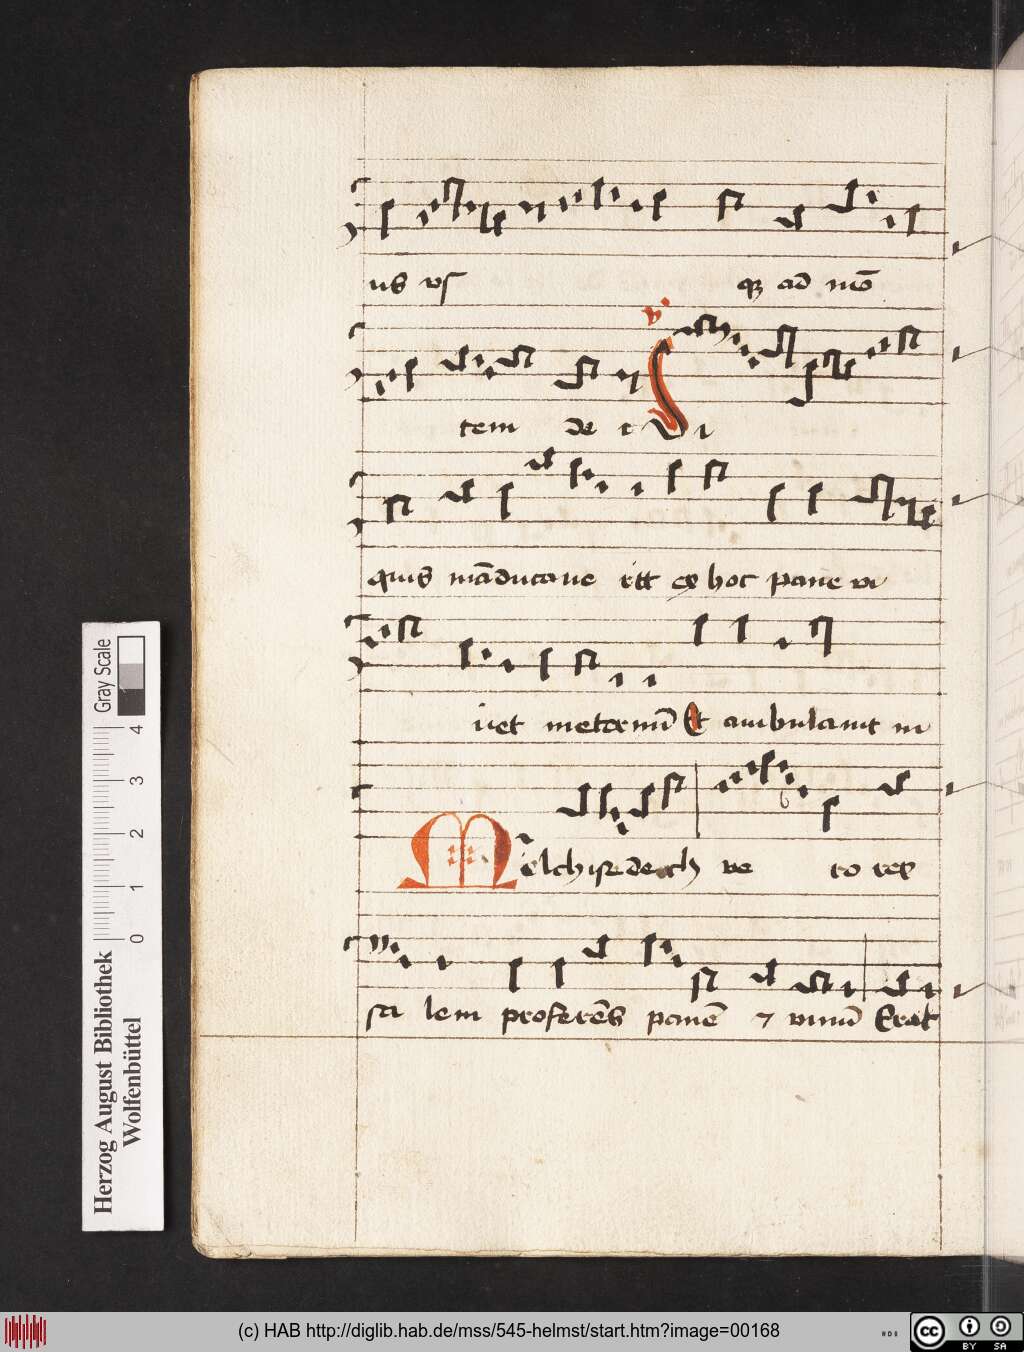 us vsq̄ ad mō
v.
tem de i Si
quis māducaue rit ex hoc pane vi
uet ineternū Et ambulauit in
Melchisedech ve ro rex
sa lem proferēs panē ⁊ vinū Erat
Gray Scale
0 1 2 3 4
Herzog August Bibliothek
Wolfenbüttel
(c) HAB http://diglib.hab.de/mss/545-helmst/start.htm?image=00168
cc BY SA